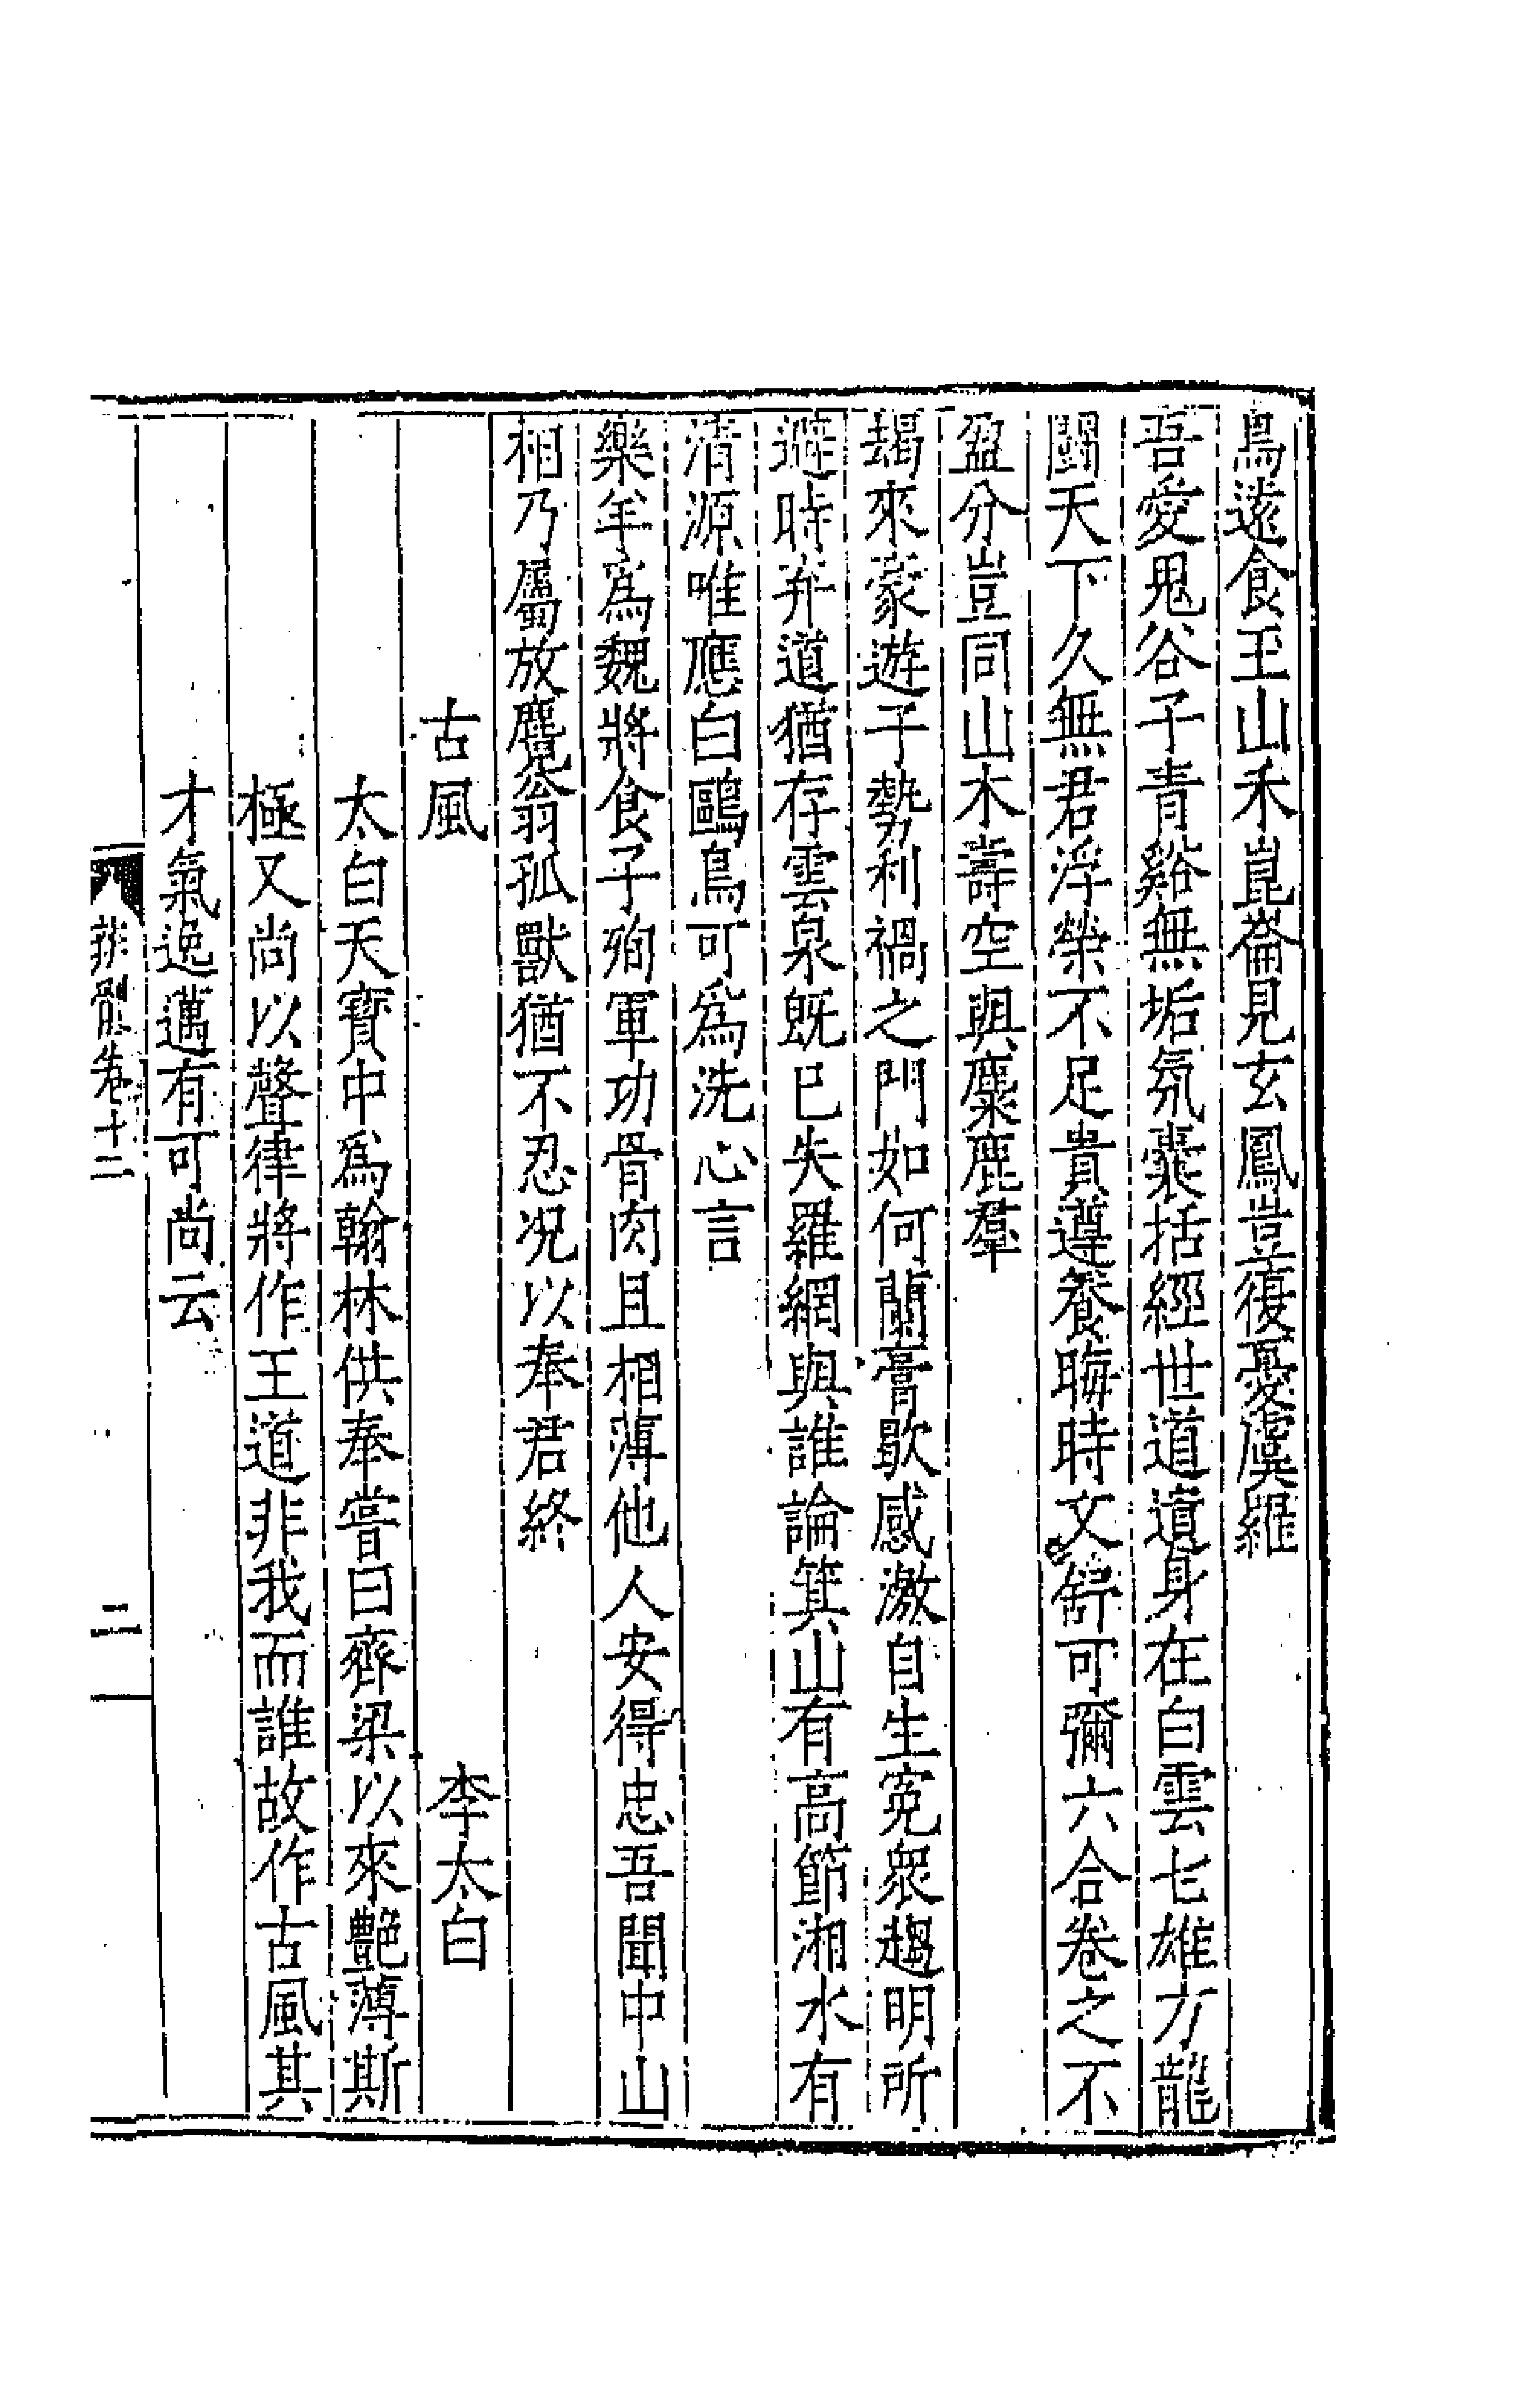 鳥遠食玉山禾崑崙見玄鳳豈復憂虞羅
吾愛鬼谷子青谿無垢氛囊括經世道遺身在白雲七雄方龍
鬭天下久無君浮榮不足貴遵養晦時文舒可彌六合卷之不
盈分豈同山木壽空與麋鹿羣
朅來豪遊子勢利禍之門如何蘭膏歇感激自生寃衆趨明所
避時弃道猶存雲泉旣已失羅網與誰論箕山有高節湘水有
清源唯應白鷗鳥可爲洗心言
樂羊爲魏將食子殉軍功骨肉且相薄他人安得忠吾聞中山
相乃屬放麑翁孤獸猶不忍况以奉君終
古風 李太白
太白天寶中爲翰林供奉嘗曰齊梁以來艷薄斯
極又尚以聲律將作王道非我而誰故作古風其
才氣逸邁有可尚云
卷十二
二